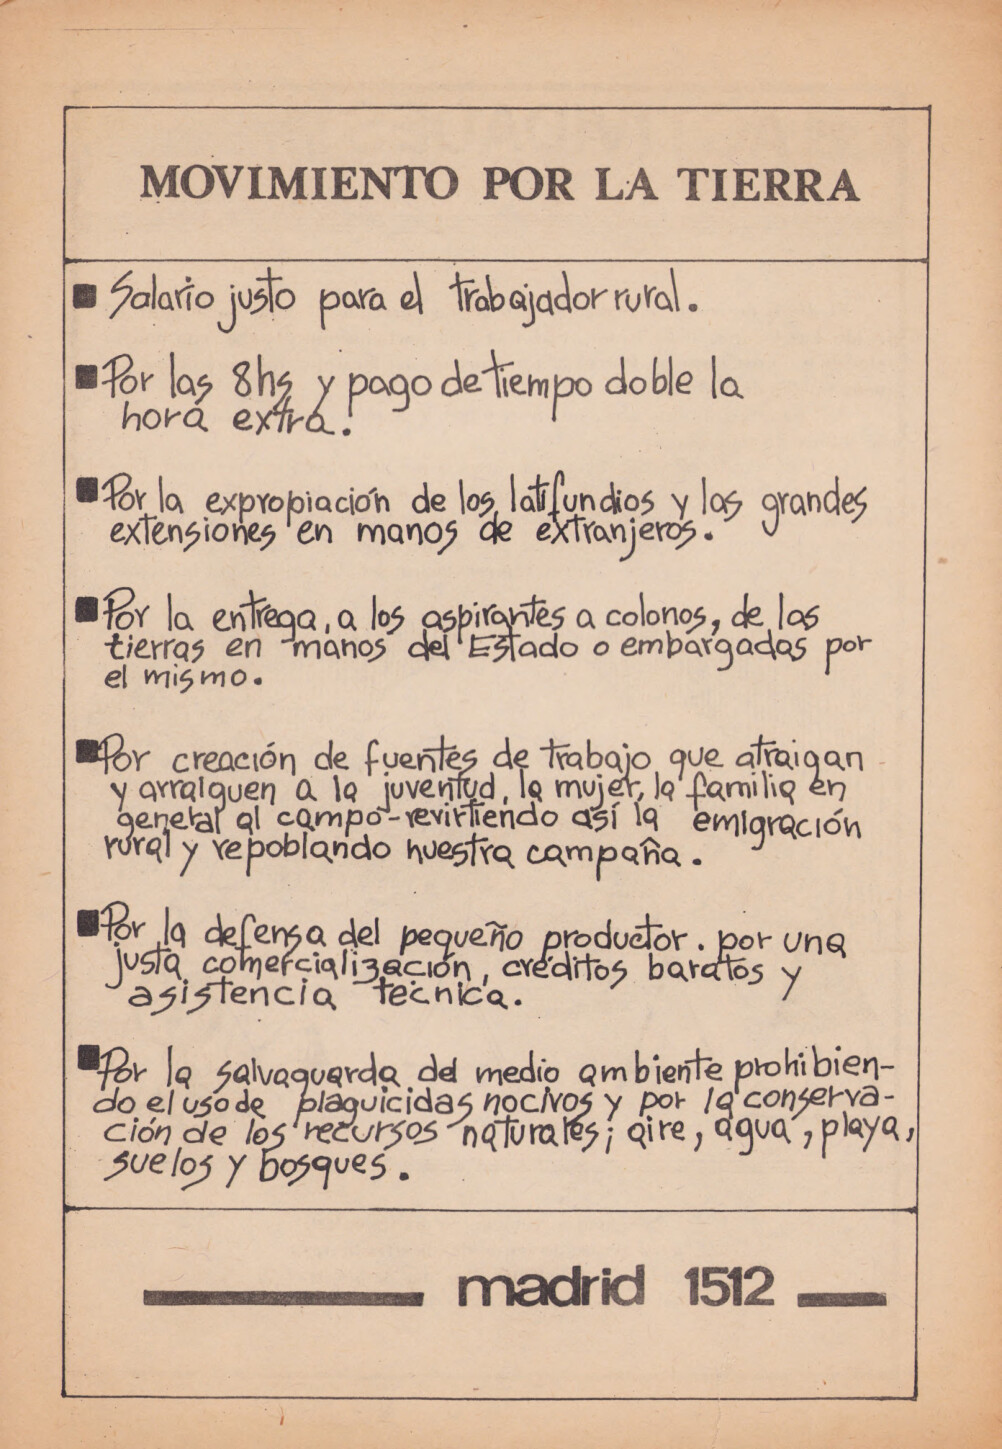 MOVIMIENTO POR LA TIERRA
■ Salario justo para el trabajador rural.
■ Por las 8hs y pago de tiempo doble la
hora extra.
■ Por la expropiación de los latifundios y las grandes
extensiones en manos de extranjeros.
■ Por la entrega, a los aspirantes a colonos, de las
tierras en manos del Estado o embargadas por
el mismo.
■ Por creación de fuentes de trabajo que atraigan
y arraiguen a la juventud, la mujer, la familia en
general al campo-revirtiendo así la emigración
rural y repoblando nuestra campaña.
■ Por la defensa del pequeño productor. por una
justa comercialización, créditos baratos y
asistencia técnica.
■ Por la salvaguarda del medio ambiente prohibien-
do el uso de plaguicidas nocivos y por la conserva-
ción de los recursos naturales; aire, agua, playa,
suelos y bosques.
madrid 1512